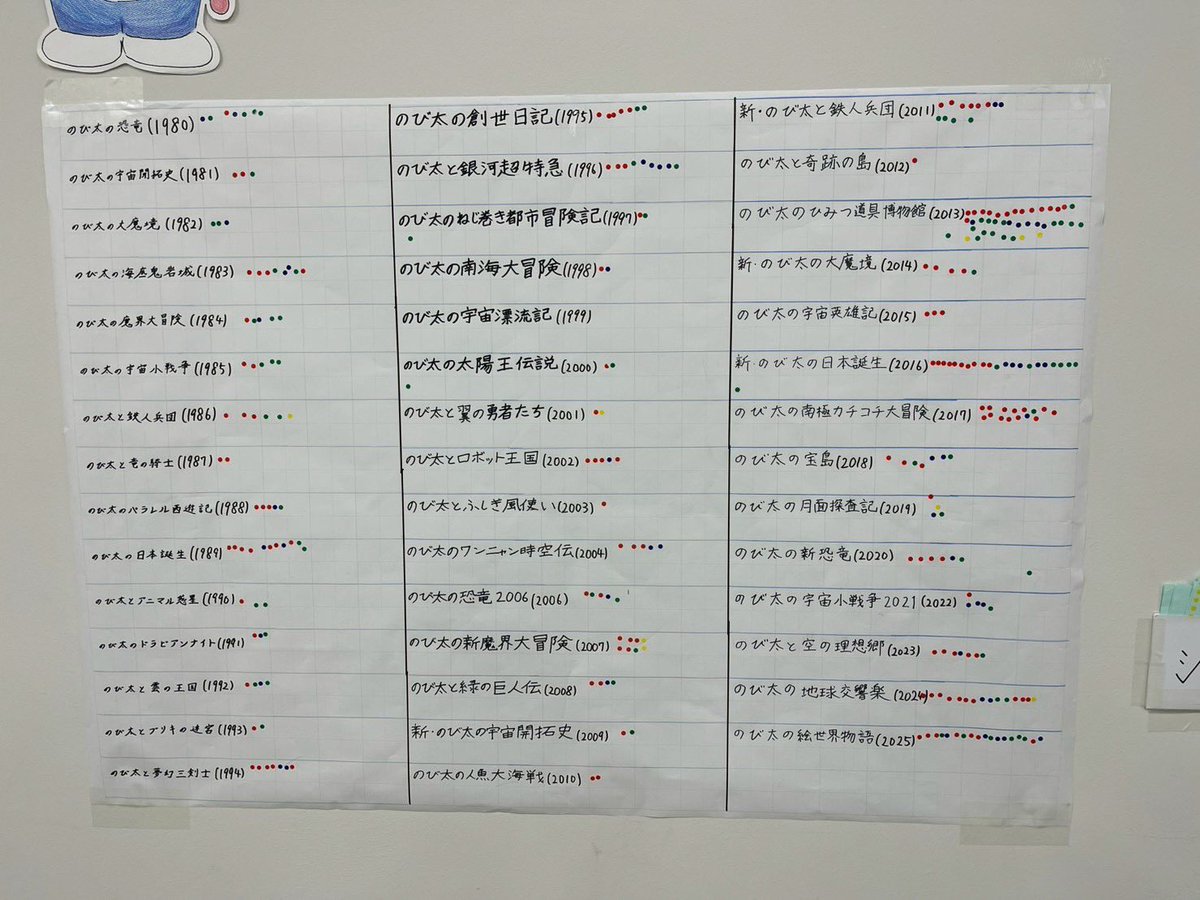 のび太の恐竜(1980)
のび太の宇宙開拓史(1981)
のび太の大魔境(1982)
のび太の海底鬼岩城(1983)
のび太の魔界大冒険(1984)
のび太の宇宙小戦争(1985)
のび太と鉄人兵団(1986)
のび太と竜の騎士(1987)
のび太のパラレル西遊記(1988)
のび太の日本誕生(1989)
のび太とアニマル惑星(1990)
のび太のドラビアンナイト(1991)
のび太と雲の王国(1992)
のび太とブリキの迷宮(1993)
のび太と夢幻三剣士(1994)
のび太の創世日記(1995)
のび太と銀河超特急(1996)
のび太のねじ巻き都市冒険記(1997)
のび太の南海大冒険(1998)
のび太の宇宙漂流記(1999)
のび太の太陽王伝説(2000)
のび太と翼の勇者たち(2001)
のび太とロボット王国(2002)
のび太とふしぎ風使い(2003)
のび太のワンニャン時空伝(2004)
のび太の恐竜2006(2006)
のび太の新魔界大冒険(2007)
のび太と緑の巨人伝(2008)
新・のび太の宇宙開拓史(2009)
のび太の人魚大海戦(2010)
新・のび太と鉄人兵団(2011)
のび太と奇跡の島(2012)
のび太のひみつ道具博物館(2013)
新・のび太の大魔境(2014)
のび太の宇宙英雄記(2015)
新・のび太の日本誕生(2016)
のび太の南極カチコチ大冒険(2017)
のび太の宝島(2018)
のび太の月面探査記(2019)
のび太の新恐竜(2020)
のび太の宇宙小戦争2021(2022)
のび太と空の理想郷(2023)
のび太の地球交響楽(2024)
のび太の絵世界物語(2025)
シ